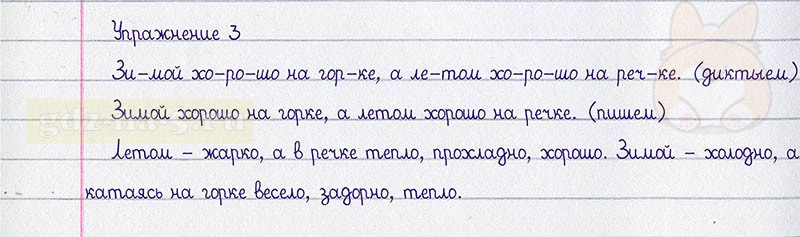 Упражнение 3
Зи-мой хо-ро-шо на гор-ке, а ле-том хо-ро-шо на реч-ке. (диктыем)
Зимой хорошо на горке, а летом хорошо на речке. (пишем)
Летом - жарко, а в речке тепло, прохладно, хорошо. Зимой - холодно, а
катаясь на горке весело, задорно, тепло.